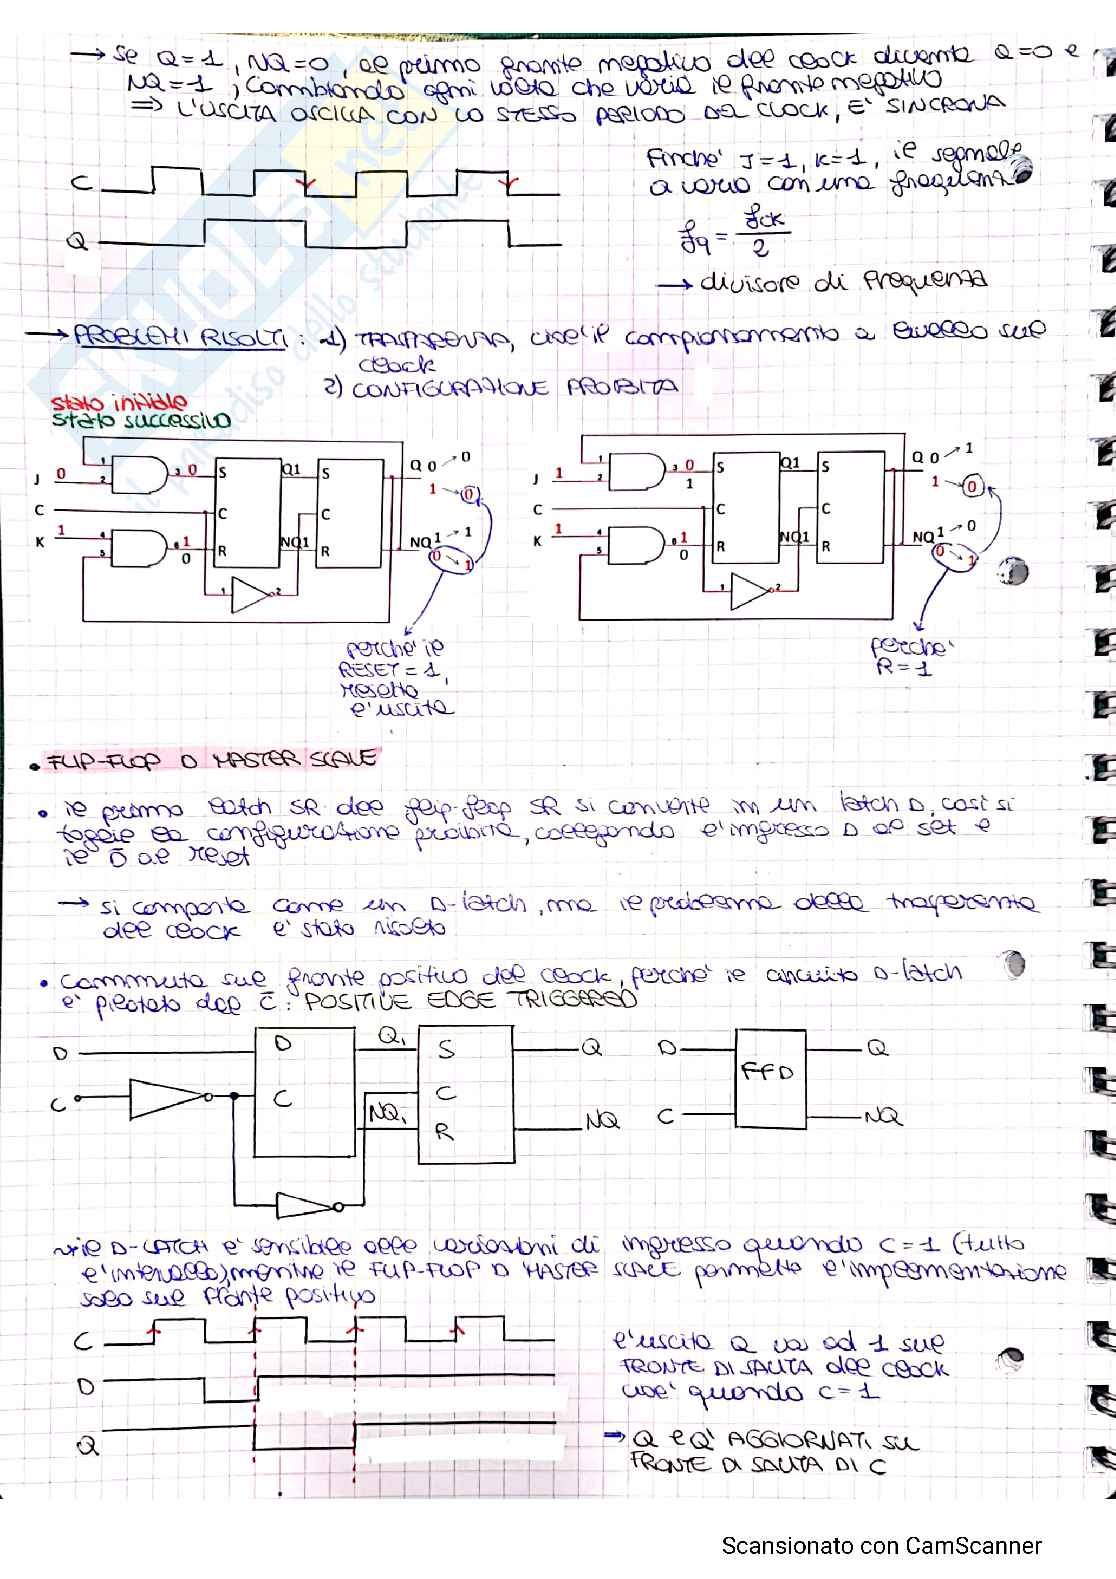 → se Q=1, NQ=0, al primo fronte negativo del clock diventa Q=0 e
NQ=1, cambiando ogni volta che varia il fronte negativo
⇒ L'USCITA OSCILLA CON LO STESSO PERIODO DEL CLOCK, E' SINCRONA
Finche' J=1, K=1, il segnale
a vario con una frequenza
C
Q
fq = fck/2
→ divisore di frequenza
→ PROBLEMI RISOLTI: 1) TRASPARENZA, cioè il comportamento a livello sul
clock
2) CONFIGURAZIONE PROIBITA
stato iniziale
stato successivo
J 0 1 2 3 0 S Q1 S Q 0→0
1→0
C C C
K 1 4 5 6 1 0 R NQ1 R NQ 1→1
0→1
1 2
J 1 1 2 3 0 1 S Q1 S Q 0→1
1→0
C C C
K 1 4 5 6 1 0 R NQ1 R NQ 1→0
0→1
1 2
perche' il
RESET=1,
resetta
l'uscita
perche'
R=1
• FLIP-FLOP D MASTER SCALE
• il primo latch SR del flip-flop SR si converte in un latch D, così si
toglie la configurazione proibita, collegando l'ingresso D al set e
il D̄ al reset
→ si comporta come un D-latch, ma il problema della trasparenza
del clock e' stato risolto
• Commuta sul fronte positivo del clock, perche' il circuito D-latch
e' pilotato dal C̄: POSITIVE EDGE TRIGGERED
D D Q₁ S Q
C C NQ₁ C
R NQ
D FFD Q
C NQ
il D-LATCH e' sensibile alle variazioni di ingresso quando C=1 (tutto
l'intervallo) mentre il FLIP-FLOP D MASTER SCALE permette l'implementazione
solo sul fronte positivo
C
D
Q
l'uscita Q va ad 1 sul
FRONTE DI SALITA del clock
cioe' quando C=1
→ Q e Q' AGGIORNATI SU
FRONTE DI SALITA DI C
Scansionato con CamScanner